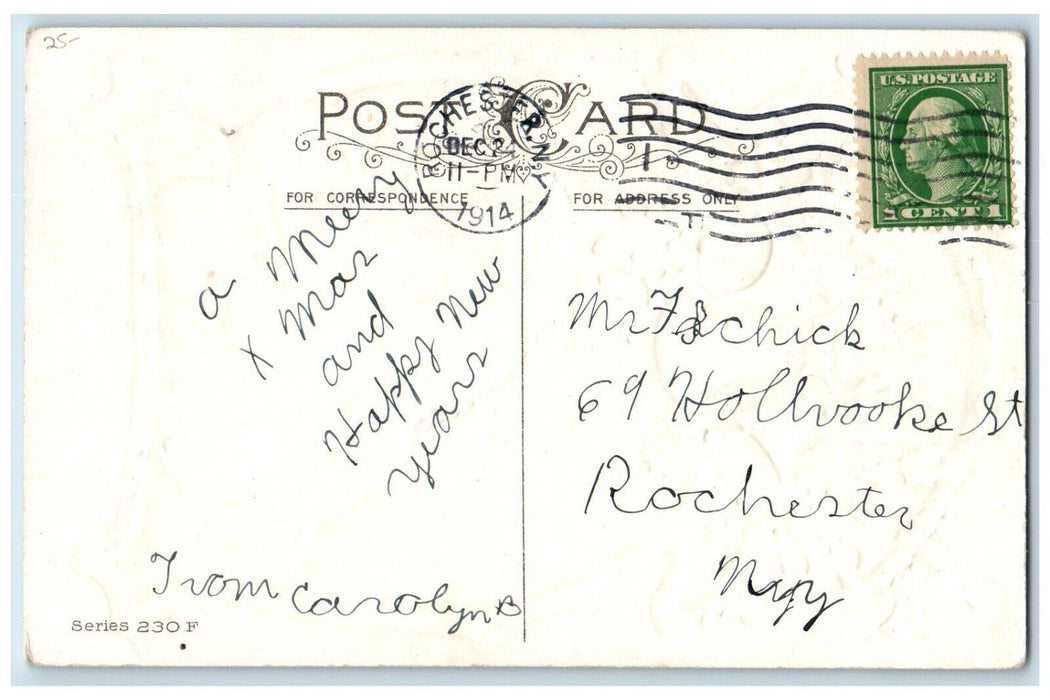 25-
POST CARD
ROCHESTER. N.Y.
DEC 24
11-PM
1914
U.S. POSTAGE
1 CENT 1
FOR CORRESPONDENCE
FOR ADDRESS ONLY
a Merry
x mas
and
Happy New
years
From Carolyn B
Series 230 F
Mr F Schick
69 Hollbrooke St
Rochester